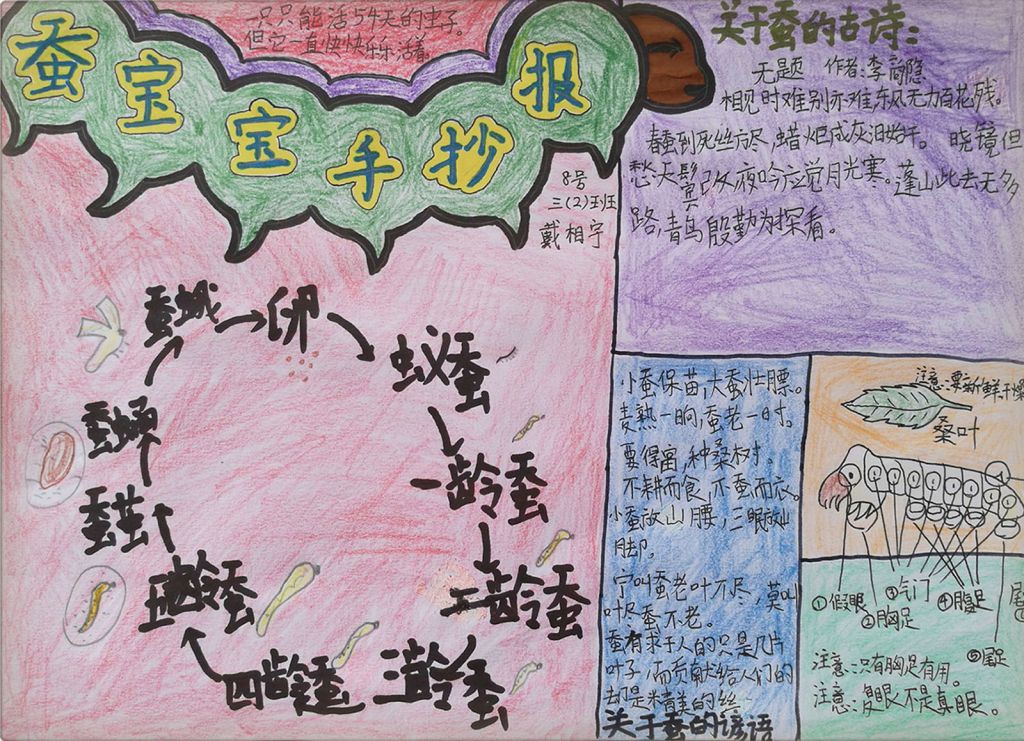 一只只能活54天的虫子。
但它一直快快乐乐活着。
蚕宝宝手抄报
8号
三(2)班
戴相宇
关于蚕的古诗:
无题 作者:李商隐
相见时难别亦难,东风无力百花残。
春蚕到死丝方尽,蜡炬成灰泪始干。 晓镜但
愁云鬓改,夜吟应觉月光寒。蓬山此去无多
路,青鸟殷勤为探看。
蚕蛾
卵
蚁蚕
一龄蚕
二龄蚕
三龄蚕
四龄蚕
五龄蚕
蚕茧
蚕蛹
小蚕保苗,大蚕壮膘。
麦熟一晌,蚕老一时。
要得富,种桑树。
不耕而食,不蚕而衣。
小蚕放山腰,三眠放山
脚。
宁叫蚕老叶不尽,莫叫
叶尽蚕不老。
蚕有求于人的只是几片
叶子,而贡献给人们的
却是精美的丝
关于蚕的谚语
注意:要新鲜干燥
桑叶
①假眼
②胸足
③气门
④腹足
⑤尾足
注意:只有胸足有用。
注意:复眼不是真眼。